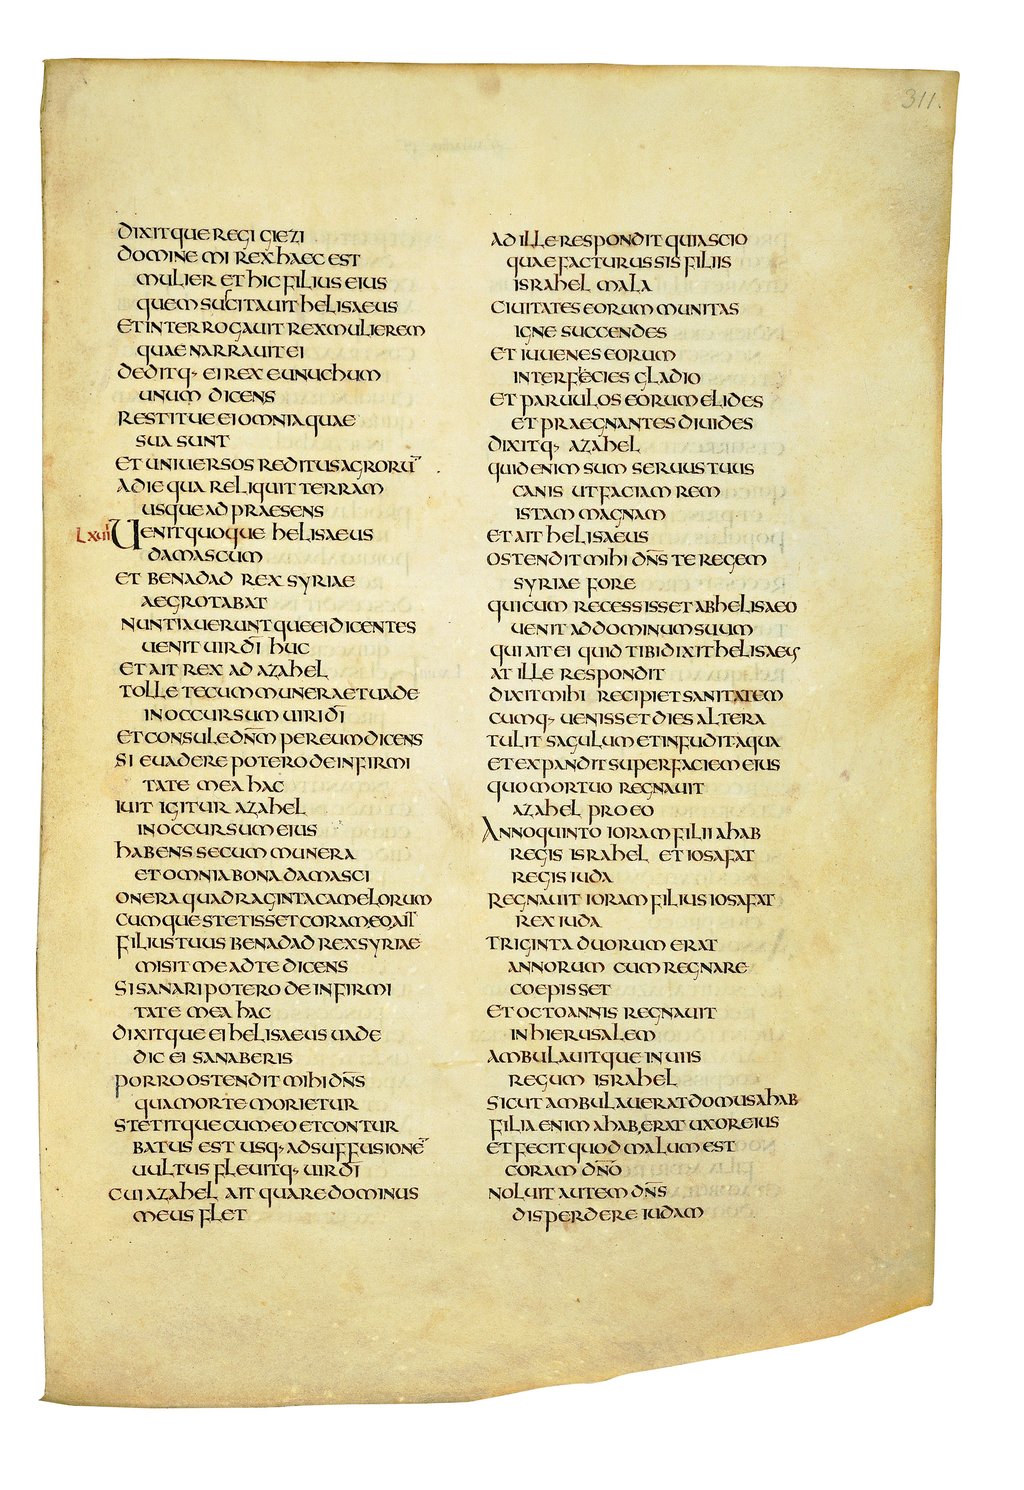 311.
dixitque regi giezi
domine mi rex haec est
mulier et hic filius eius
quem suscitauit helisaeus
et interrogauit rex mulierem
quae narrauit ei
deditq· ei rex eunuchum
unum dicens
restitue ei omnia quae
sua sunt
et uniuersos reditus agrorū
a die qua reliquit terram
usque ad praesens
lxiii Uenit quoque helisaeus
damascum
et benadad rex syriae
aegrotabat
nuntiauerunt que ei dicentes
uenit uir dī huc
et ait rex ad azahel
tolle tecum munera et uade
in occursum uiri dī
et consule dn̄m per eum dicens
si euadere potero de infirmi
tate mea hac
iuit igitur azahel
in occursum eius
habens secum munera
et omnia bona damasci
onera quadraginta camelorum
cumque stetisset coram eo, ait
filius tuus benadad rex syriae
misit me ad te dicens
si sanari potero de infirmi
tate mea hac
dixitque ei helisaeus uade
dic ei sanaberis
porro ostendit mihi dn̄s
qua morte morietur
stetitque cum eo et contur
batus est usq· ad suffusionē
uultus fleuitq· uir dī
cui azahel ait quare dominus
meus flet
ad ille respondit quia scio
quae facturus sis filiis
israhel mala
ciuitates eorum munitas
igne succendes
et iuuenes eorum
interfecies gladio
et paruulos eorum elides
et praegnantes diuides
dixitq· azahel
quid enim sum seruus tuus
canis ut faciam rem
istam magnam
et ait helisaeus
ostendit mihi dn̄s te regem
syriae fore
qui cum recessisset ab helisaeo
uenit ad dominum suum
qui ait ei quid tibi dixit helisaeus
at ille respondit
dixit mihi recipiet sanitatem
cumq· uenisset dies altera
tulit sagulum et infudit aqua
et expandit super faciem eius
quo mortuo regnauit
azahel pro eo
Anno quinto ioram filii ahab
regis israhel et iosafat
regis iuda
regnauit ioram filius iosafat
rex iuda
triginta duorum erat
annorum cum regnare
coepisset
et octo annis regnauit
in hierusalem
ambulauitque in uiis
regum israhel
sicut ambulauerat domus ahab
filia enim ahab, erat uxor eius
et fecit quod malum est
coram dn̄o
noluit autem dn̄s
disperdere iudam